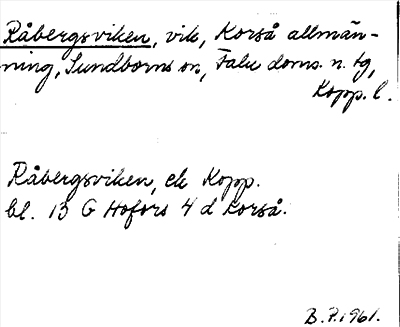 Råbergsviken, vik, Korså allmän-
ning, Sundborns sn, Falu doms. n. tg,
Kopp. l.
Råbergsviken, ek Kopp.
bl. 13 G Hofors 4 d Korså.
B.P. 1961.